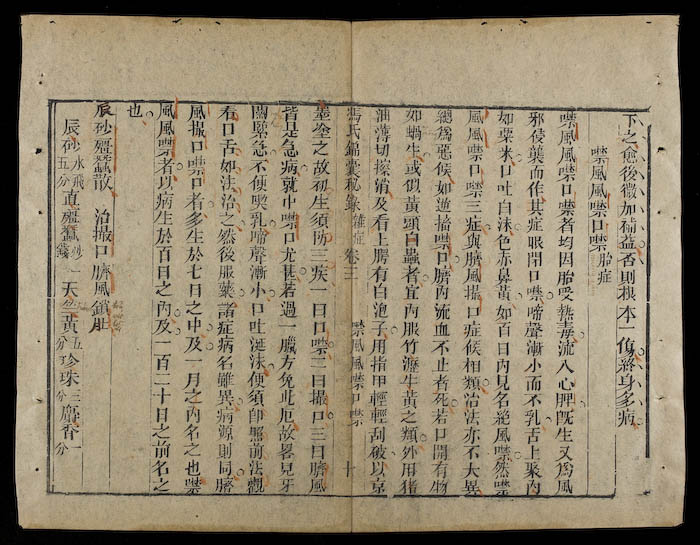 下之愈後微加補益否則根本一傷終身多病
噤風風噤口噤胎症
噤風風噤口噤者均因胎受熱毒流入心脾既生又為風
邪侵襲而作其症眼閉口噤啼聲漸小而不乳舌上聚肉
如粟米口吐白沫色赤鼻黃如百日內見名純風噤然噤
風風噤口噤三症與臍風撮口症候相類治法亦不大異
總為惡候如逆搐噤口臍內流血不止者死若口開有物
如蝸牛或似黃頭白蟲者宜內服竹瀝牛黃之類外用猪
油薄切擦消及看上腭有白泡子用指甲輕輕刮破以京
馮氏錦囊秘錄雜症 卷三 噤風風噤口噤 十
墨塗之故初生須防三疾一曰口噤二曰撮口三曰臍風
皆是急病就中噤口尤甚若過一臘方免此厄故畧見牙
關緊急不便喫乳啼聲漸小口吐涎沫便須即照前法觀
看口舌如法治之然後服藥諸症病名雖異病源則同臍
風撮口噤口者多生於七日之中及一月之內名之也噤
風風噤者以病生於百日之內及一百二十日之前名之
也
辰砂殭蠶散 治撮口臍風鎖肚
辰砂水飛五分直殭蠶炒一錢天竺黃五分珍珠三分麝香一分